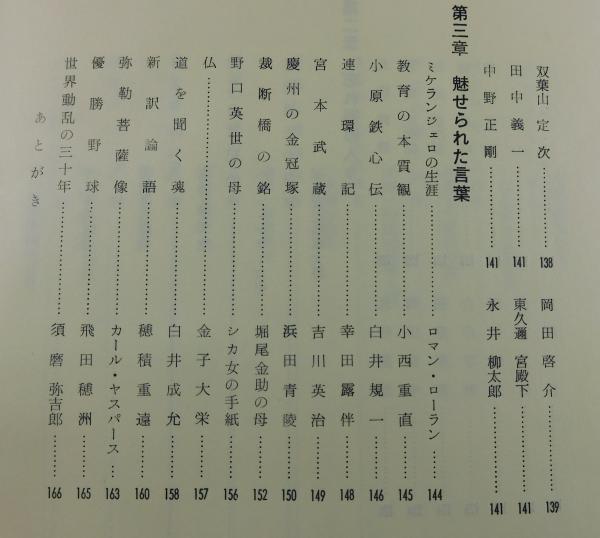 双葉山定次……………138
岡田啓介……………139
田中義一……………141
東久邇宮殿下……………141
中野正剛……………141
永井柳太郎……………141
第三章 魅せられた言葉
ミケランジェロの生涯……………ロマン・ローラン……144
教育の本質観……………小西重直……………145
小原鉄心伝……………白井規一……………146
連環記……………幸田露伴……………148
宮本武蔵……………吉川英治……………149
慶州の金冠塚……………浜田青陵……………150
裁断橋の銘……………堀尾金助の母……………152
野口英世の母……………シカ女の手紙……………156
仏……………金子大栄……………157
道を聞く魂……………白井成允……………158
新訳論語……………穂積重遠……………160
弥勒菩薩像……………カール・ヤスパース…163
優勝野球……………飛田穂洲……………165
世界動乱の三十年……………須磨弥吉郎……………166
あとがき